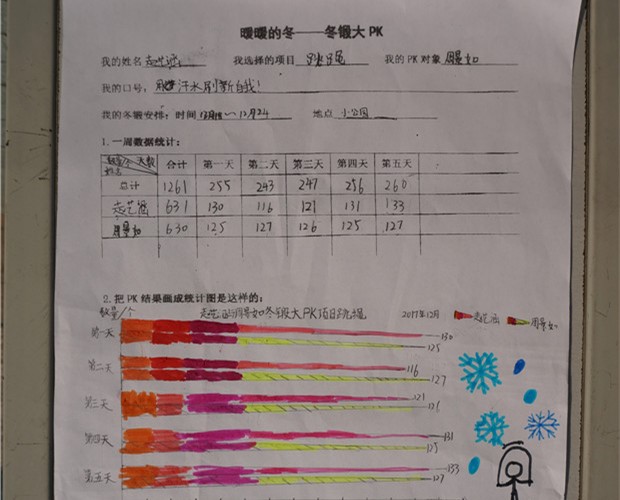 暖暖的冬——冬锻大PK
我的姓名 我选择的项目 跳绳 我的PK对象 周景如
我的口号: 用汗水刷新自我!
我的冬锻安排: 时间 ～12月24 地点 小公园
1.一周数据统计:
数量/个 天数 合计 第一天 第二天 第三天 第四天 第五天
姓名
总计 1261 255 243 247 256 260
631 130 116 121 131 133
周景如 630 125 127 126 125 127
2.把PK结果画成统计图是这样的:
数量/个 周景如冬锻大PK项目跳绳 2017年12月 周景如
第一天 130
125
第二天 116
127
第三天 121
126
第四天 131
125
第五天 133
127